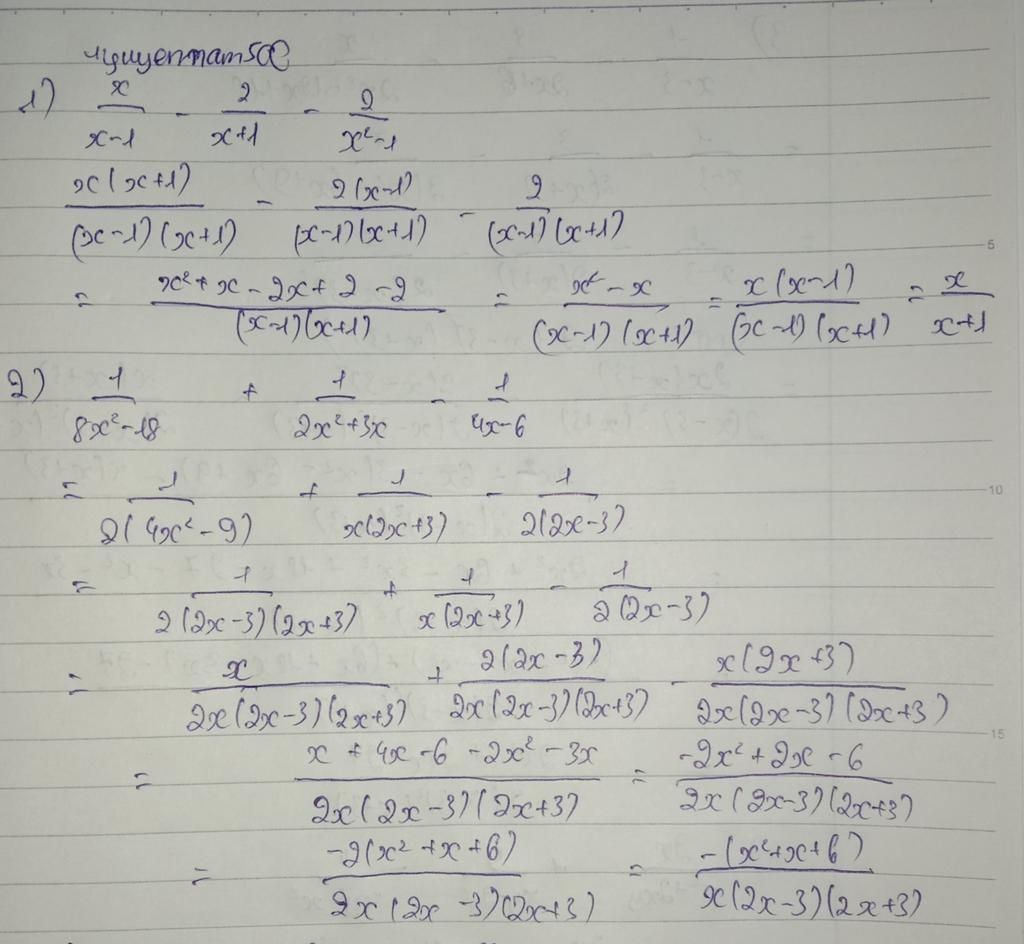 1) x/(x-1) - 2/(x+1) - 2/(x²-1)
x(x+1)/((x-1)(x+1)) - 2(x-1)/((x-1)(x+1)) - 2/((x-1)(x+1))
= (x²+x-2x+2-2)/((x-1)(x+1)) = (x²-x)/((x-1)(x+1)) = x(x-1)/((x-1)(x+1)) = x/(x+1)
2) 1/(8x²-18) + 1/(2x²+3x) - 1/(4x-6)
= 1/(2(4x²-9)) + 1/(x(2x+3)) - 1/(2(2x-3))
= 1/(2(2x-3)(2x+3)) + 1/(x(2x+3)) - 1/(2(2x-3))
= x/(2x(2x-3)(2x+3)) + 2(2x-3)/(2x(2x-3)(2x+3)) - x(2x+3)/(2x(2x-3)(2x+3))
= (x+4x-6-2x²-3x)/(2x(2x-3)(2x+3)) = (-2x²+2x-6)/(2x(2x-3)(2x+3))
= -2(x²+x+6)/(2x(2x-3)(2x+3)) = -(x²+x+6)/(x(2x-3)(2x+3))
5
10
15